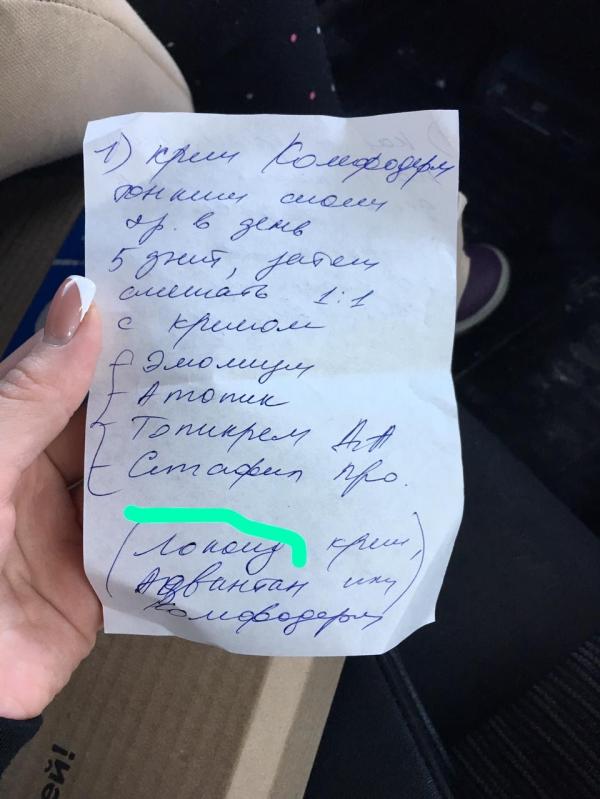 1) крем Комфодерм
тонким слоем
2р. в день
5 дней, затем
смешать 1:1
с кремом
Эмолиум
Атопик
Топикрем DA
Сетафил Про.
(Локоид крем,
Адвантан или
Комфодерм)
ей!